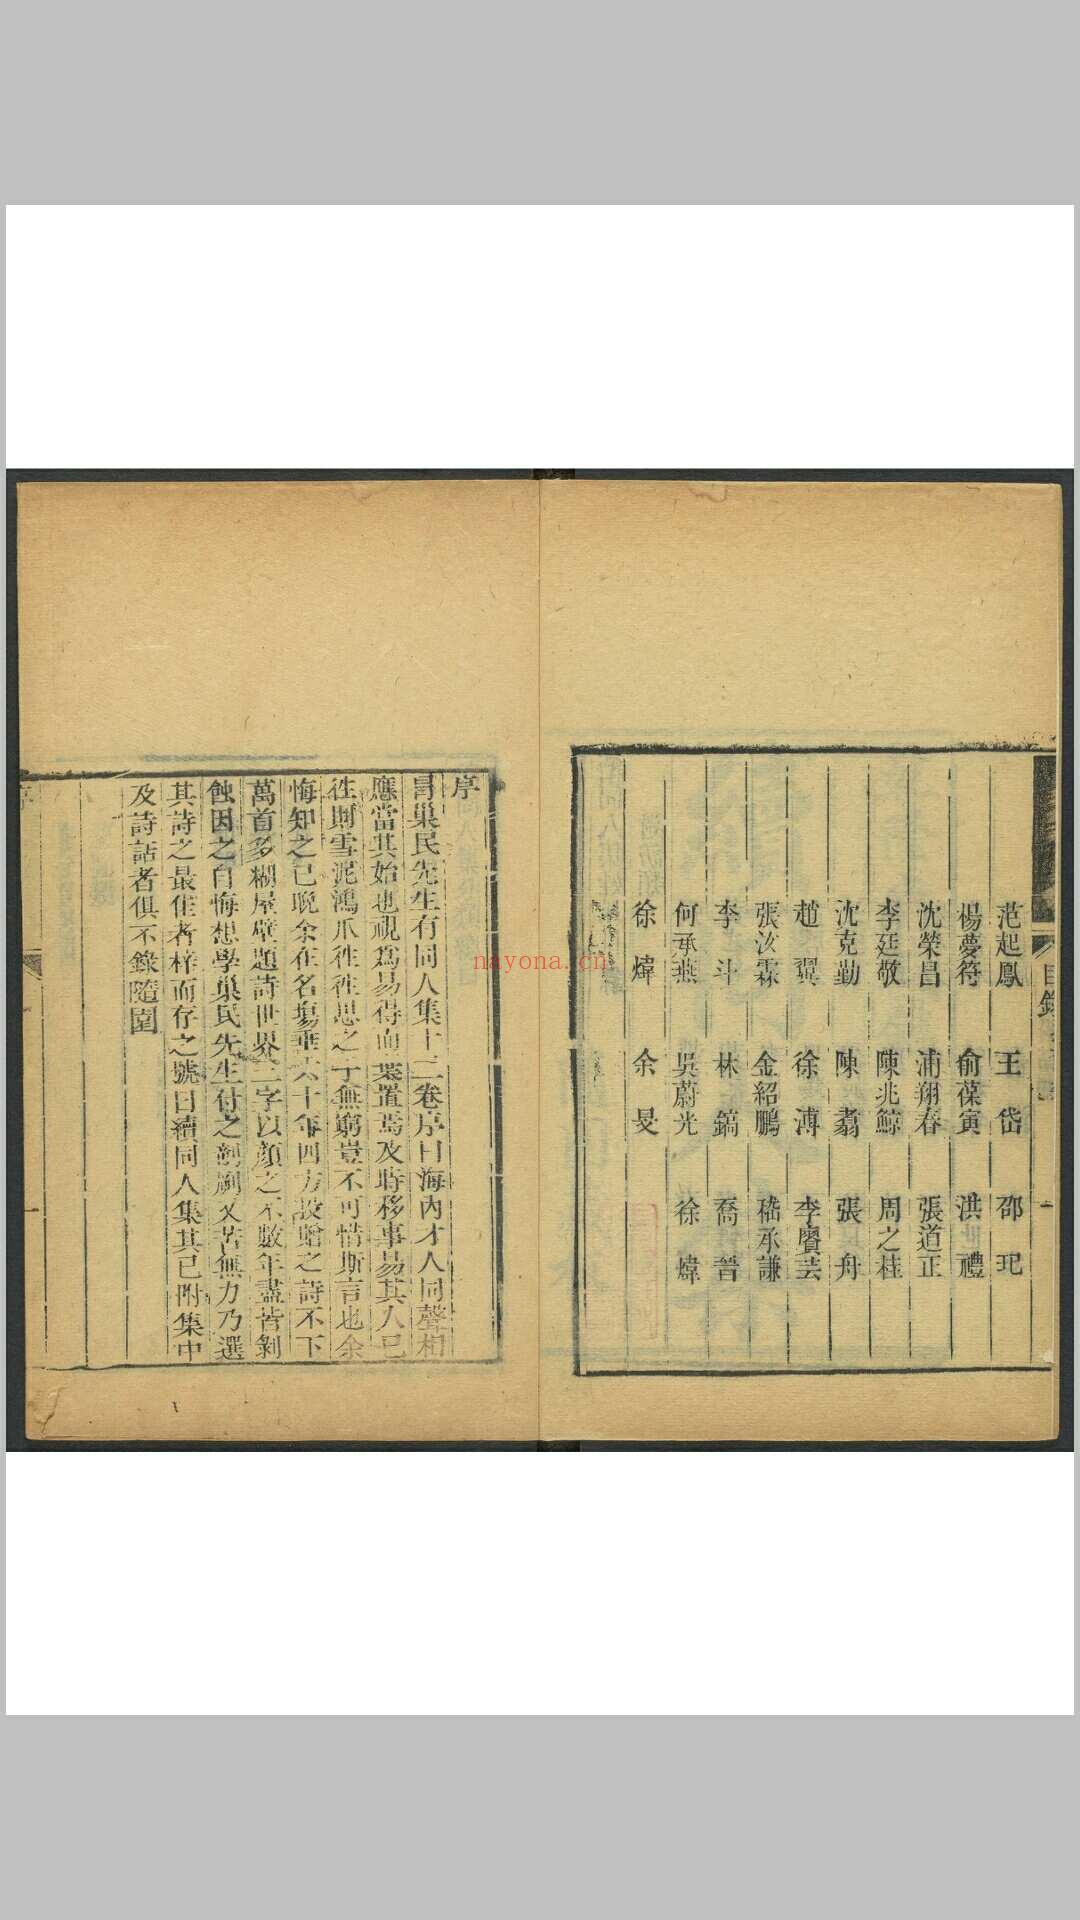 目錄
一
范起鳳 王岱 邵玘
楊夢符 俞葆寅 洪禮
沈榮昌 浦翔春 張道正
李廷敬 陳兆鯨 周之桂
沈克勤 陳翥 張舟
趙翼 徐溥 李賡芸
張汝霖 金紹鵬 嵇承謙
李斗 林鎬 喬晉
何承燕 吳蔚光 徐煒
徐煒 余旻
序
冒巢民先生有同人集十二卷序曰海內才人同聲相
應當其始也視爲易得而葉置焉及時移事易其人已
徃則雪泥鴻爪徃徃思之了無窮豈不可惜斯言也余
悔知之已晚余在名塲垂六十年四方投贈之詩不下
萬首多糊屋壁題詩世界二字以顔之不數年盡皆剝
蝕因之自悔想學巢民先生付之剞劂又苦無力乃選
其詩之最佳者梓而存之號曰續同人集其已附集中
及詩話者俱不錄隨園
nayona.cn